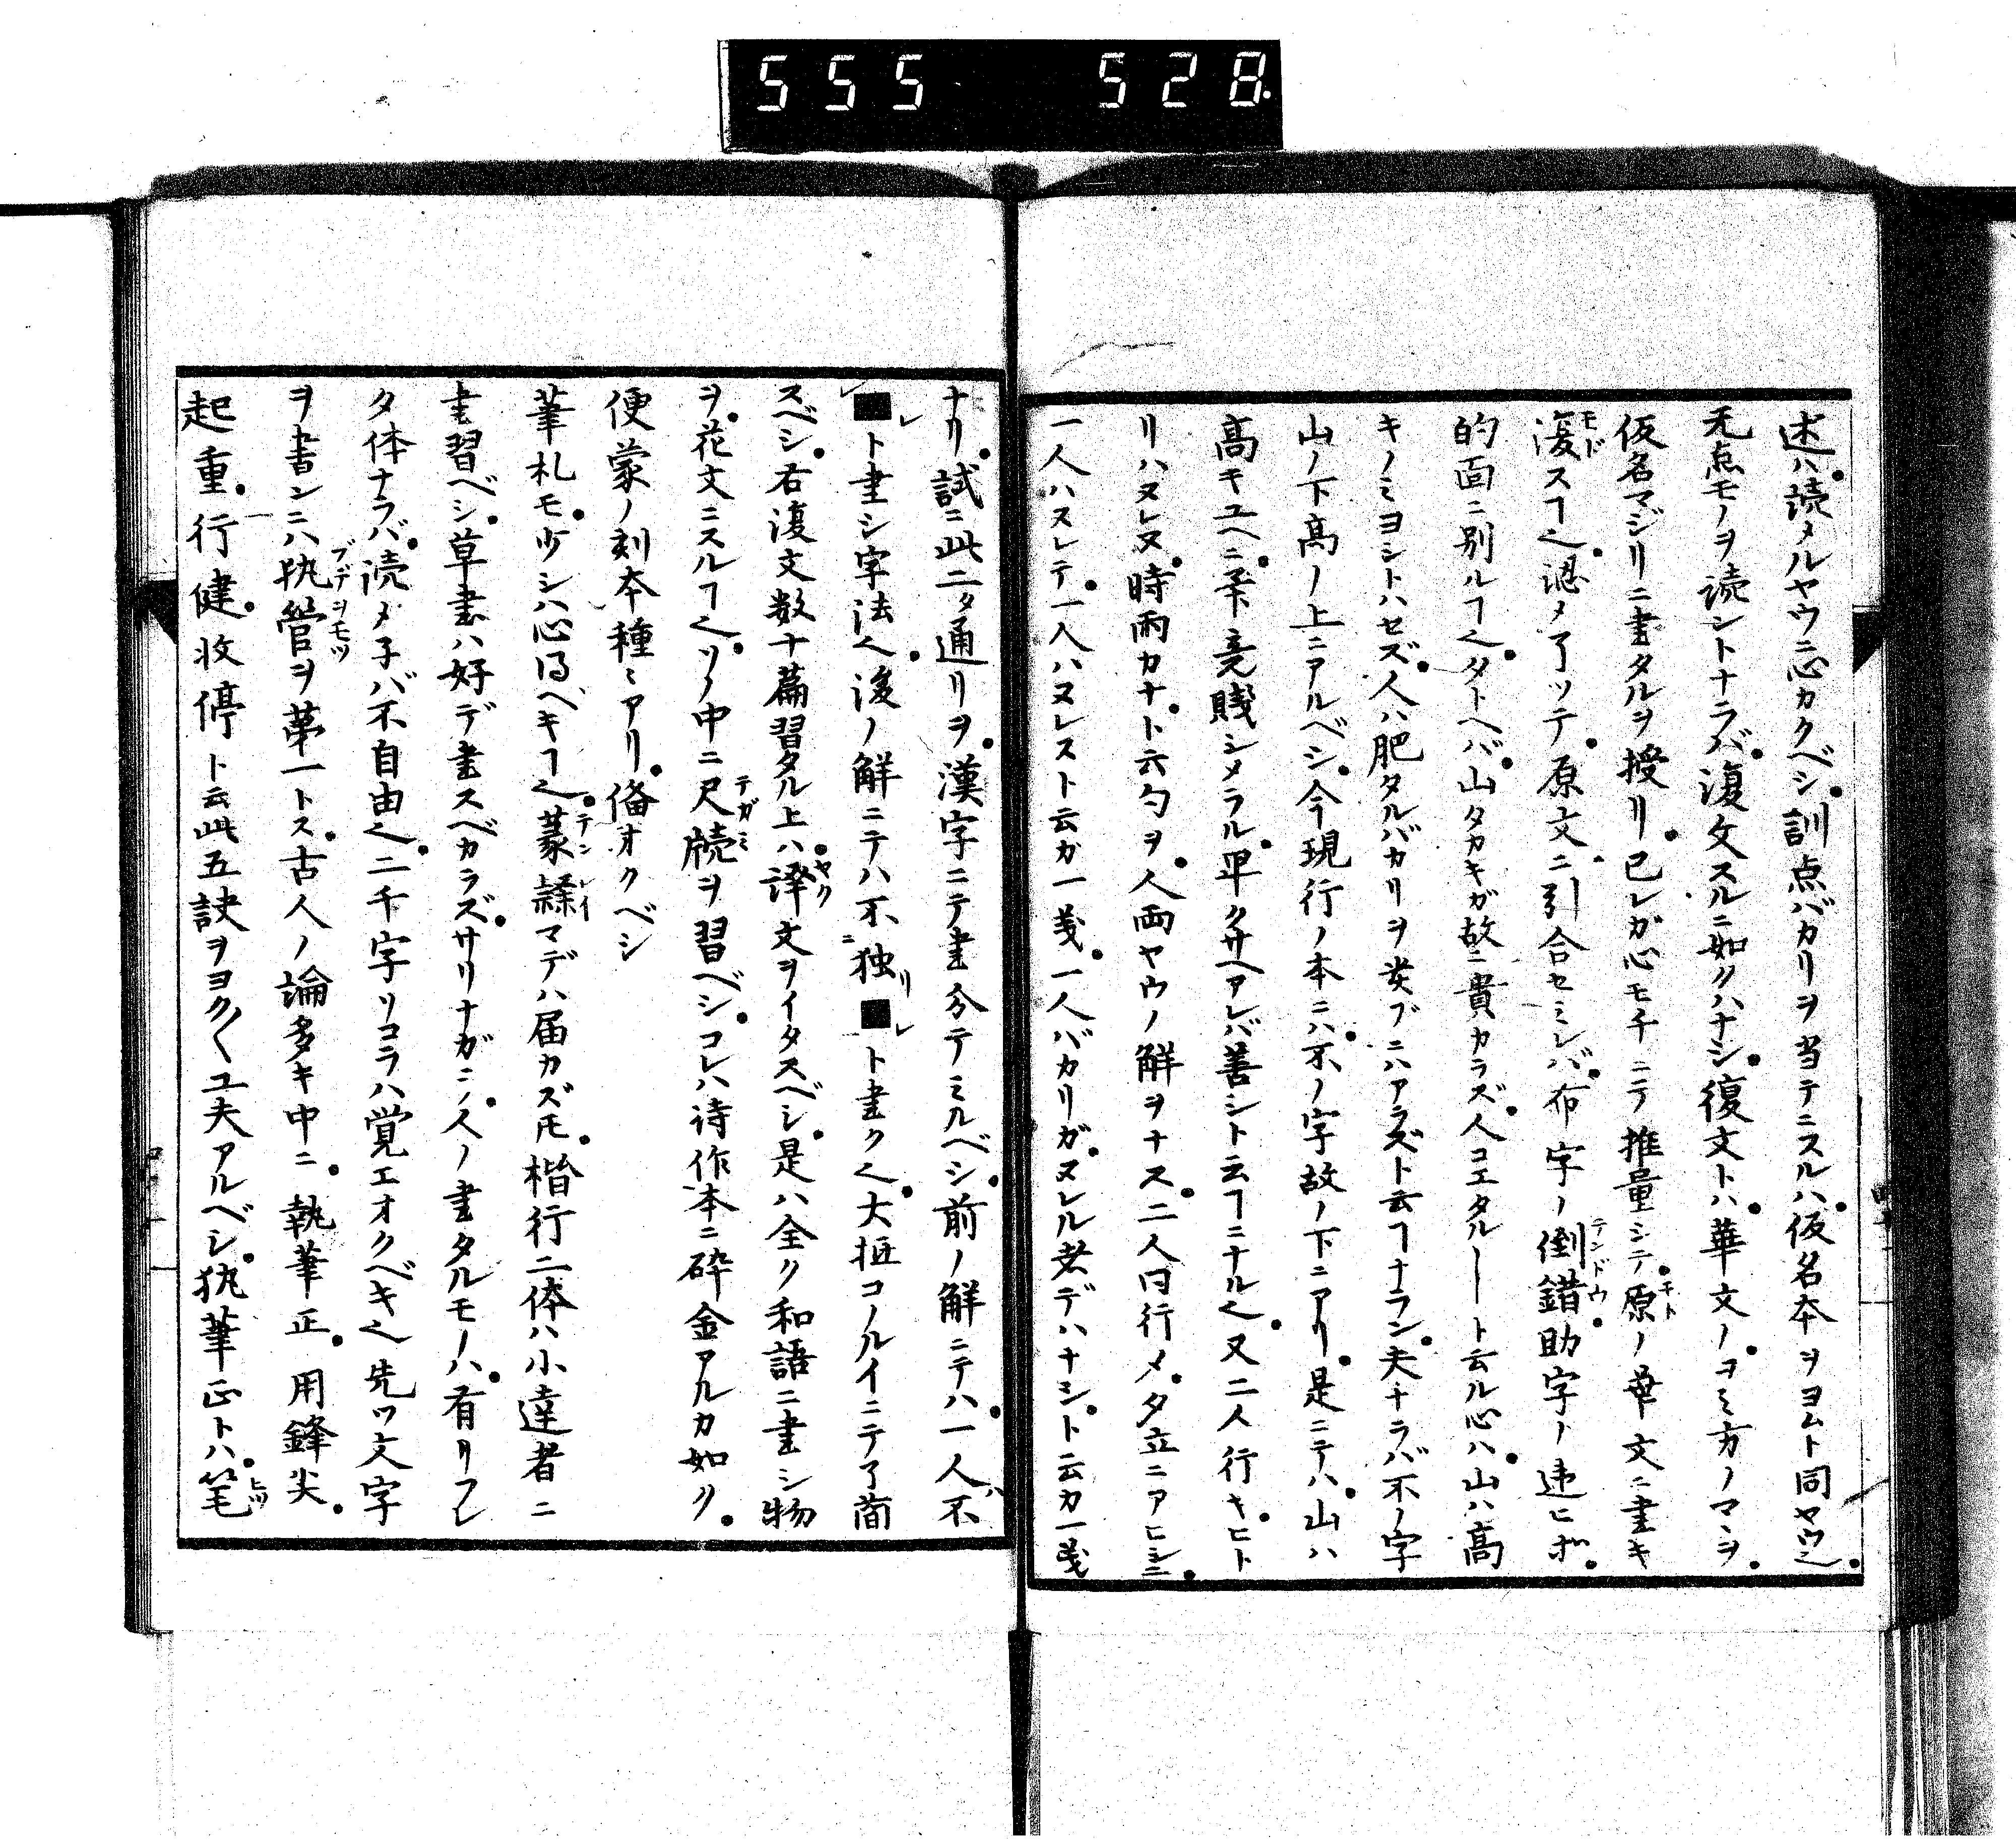 555 528.
述ハ読メルヤウニ心カクベシ訓点バカリヲ当テニスルハ仮名本ヲヨムト同ヤウ也
无点モノヲ読ントナラバ復文スルニ如クハナシ復文トハ華文ノヨミ方ノマヽヲ
仮名マジリニ書タルヲ授リ已レガ心モチニテ推量シテ原ノ華文ニ書キ
復スヿ也認メヲハツテ原文ニ引合セミレバ布字ノ倒錯助字ノ違ヒガ
的面ニ別ルヿ也タトヘバ山タカキガ故ニ貴カラズ人コエタル――ト云ル心ハ山ハ高
キノミヨシトハセズ人ハ肥タルバカリヲ娄ブニハアラズト云ヿナラン夫ナラバ不ノ字
山ノ下高ノ上ニアルベシ今現行ノ本ニハ不ノ字故ノ下ニアリ是ニテハ山ハ
高キユヘニ夲下竟賎シメラル早クサヘアレバ善シト云ヿニナル也又二人行キヒト
リハヌレヌ時雨カナト云句ヲ人両ヤウノ解ヲナス二人曰行メタ立ニアヒシニ
一人ハスレテ一人ハヌレスト云カ一義一人バカリガヌレル者デハナシト云カ一義
ナリ試ニ此二タ通リヲ漢字ニテ書分テミルベシ前ノ解ニテハ一人ハ不
■ト書シ字法也後ノ解ニテハ不独リ■ト書ク也大抵コノルイニテ了簡
スベシ右復文数十篇習タル上ハ譯文ヲイタスベシ是ハ全ク和語ニ書シ物
ヲ花文ニスルヿ也ソノ中ニ尺牘ヲ習ベシコレハ詩作本ニ砕金アルカ如ク
便蒙ノ刻本種ミアリ備オクベシ
筆札モ少シハ心得ベキヿ也篆隷マデハ届カズ𪜈楷行二体ハ小達者ニ
書習ベシ草書ハ好デ書スベカラズサリナガラ人ノ書タルモノハ有リフレ
タ体ナラバ読メ子バ不自由也二千字ソコラハ覚エオクベキ也先ツ文字
ヲ書ンニハ執管ヲ第一トス古人ノ論多キ中ニ執筆正用鋒尖
起重行健收停ト云此五訣ヲヨク〱工夫アルベシ執筆正トハ笔